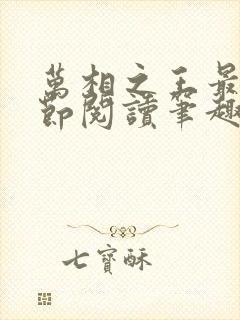 萬相之王最
節閱讀筆趣
七寶酥